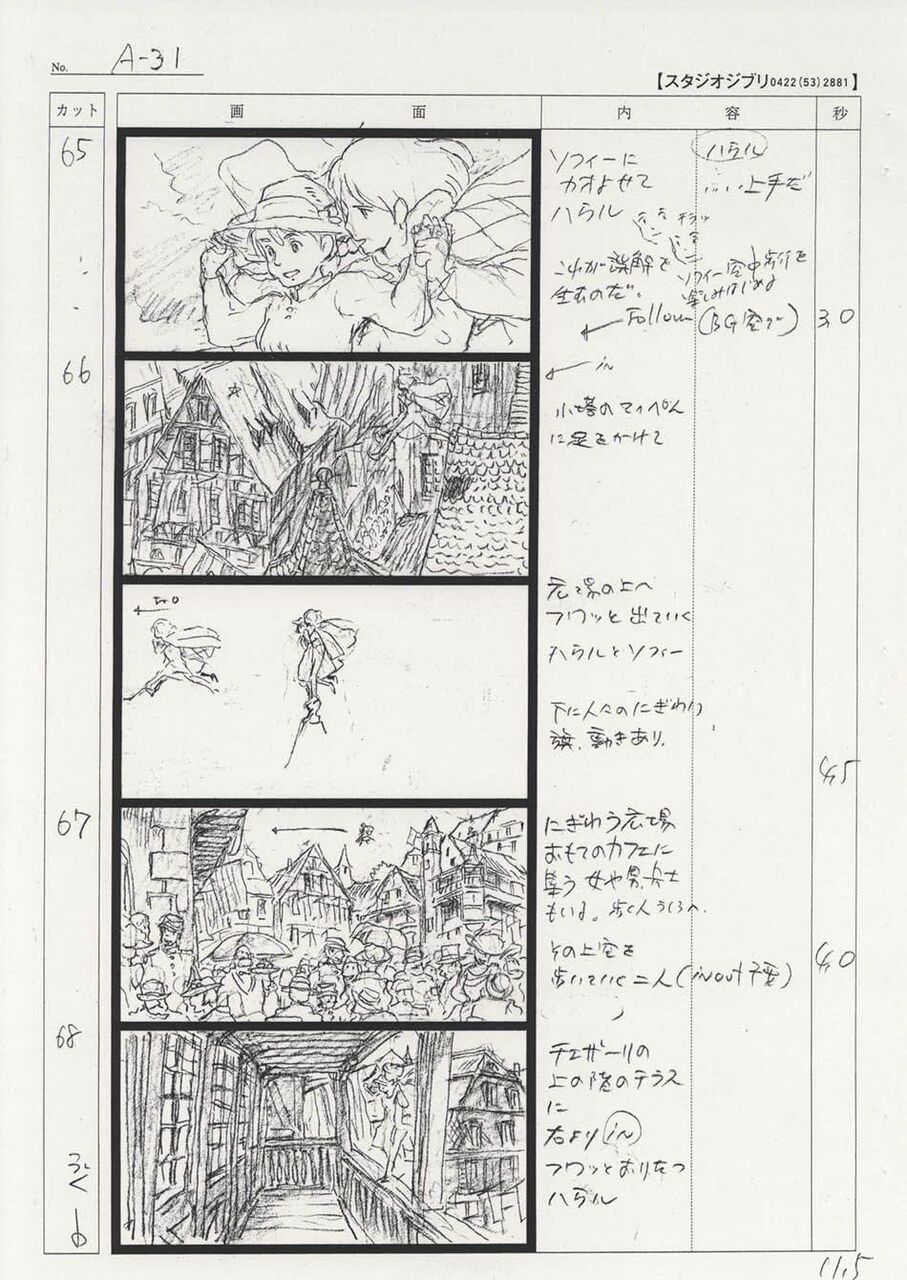 No. A-31
【スタジオジブリ0422(53)2881】
カット 画 面 内 容 秒
65
ソフィーに
カオよせて
ハウル
ハウル
上手だ
これが誤解を
生むのだ。
ソフィー空中歩行を
楽しみはじめる
Follow (BG空で)
3.0
66
in
小塔のてっぺん
に足をかけて
広場の上へ
フワッと出ていく
ハウルとソフィー
下に人々のにぎわい
旗、動きあり、
4.5
67
にぎわう広場
おもてのカフェに
集う 女や男、兵士
もいる。歩く人
その上空を
歩いていく二人(in out 不要)
4.0
68
チェザーリの
上の階のテラス
に
右より in
フワッとおりたつ
ハウル
つづく
11.5